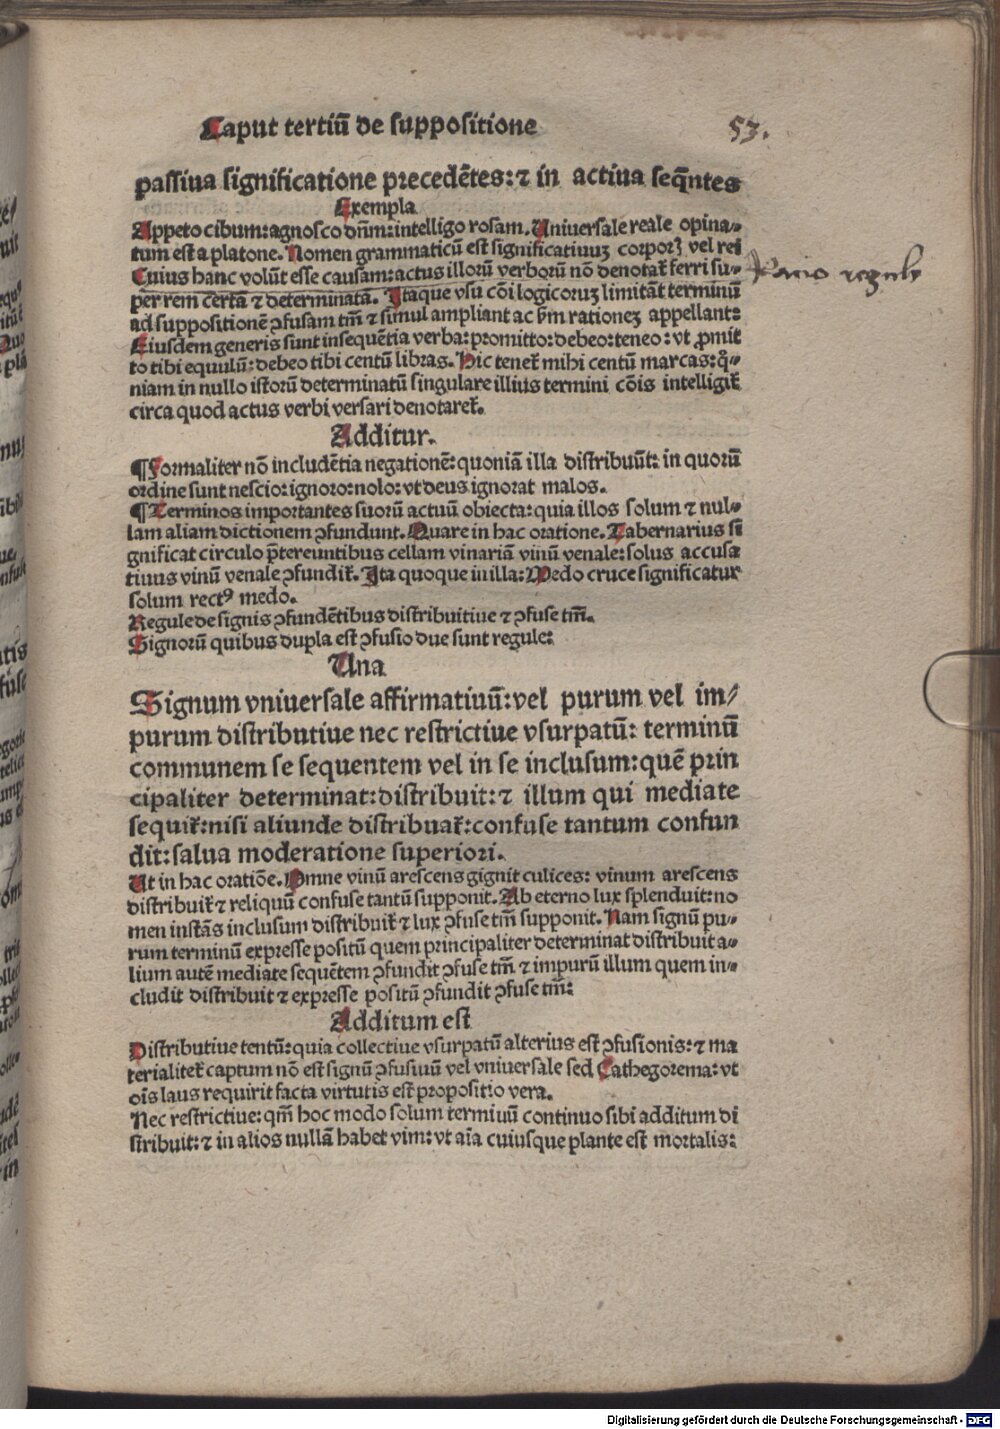 Caput tertiū de suppositione
53.
passiua significatione precedētes: ⁊ in actiua seq̄ntes
Exempla
Appeto cibum: agnosco dn̄m: intelligo rosam. Uniuersale reale opina⸗
tum est a platone. Nomen grammaticū est significatiuuꝫ corporꝝ vel rei
Cuius hanc volūt esse causam: actus illorū verborū nō denotat᷑ ferri su⸗
per rem certā ⁊ determinatā. Itaque vsu cōi logicoruꝫ limitāt terminū
Racio regule
ad suppositionē ꝯfusam tm̄ ⁊ simul ampliant ac ẜm rationeꝫ appellant:
Eiusdem generis sunt insequētia verba: promitto: debeo: teneo: vt ꝓmit
to tibi equulū: debeo tibi centū libras. Hic tenet᷑ mihi centū marcas: qm̄⸗
niam in nullo istorū determinatū singulare illius termini cōis intelligit᷑
circa quod actus verbi versari denotaret᷑.
Additur.
¶ Formaliter nō includētia negationē: quoniā illa distribuūt: in quorū
ordine sunt nescio: ignoro: nolo: vt deus ignorat malos.
¶ Terminos importantes suorū actuū obiecta: quia illos solum ⁊ nul⸗
lam aliam dictionem ꝯfundunt. Quare in hac oratione. Tabernarius si
gnificat circulo p̄tereuntibus cellam vinariā vinū venale: solus accusa
tiuus vinū venale ꝯfundit᷑. Ita quoque in illa: Medo cruce significatur
solum rectꝰ medo.
Regule de signis ꝯfundētibus distribuitiue ⁊ ꝯfuse tm̄.
Signorū quibus dupla est ꝯfusio due sunt regule:
Una
Signum vniuersale affirmatiuū: vel purum vel im⸗
purum distributiue nec restrictiue vsurpatū: terminū
communem se sequentem vel in se inclusum: quē prin
cipaliter determinat: distribuit: ⁊ illum qui mediate
sequit᷑: nisi aliunde distribuat᷑: confuse tantum confun
dit: salua moderatione superiori.
Ut in hac oratiōe. Omne vinū arescens gignit culices: vinum arescens
distribuit᷑ ⁊ reliquū confuse tantū supponit. Ab eterno lux splenduit: no
men instās inclusum distribuit᷑ ⁊ lux ꝯfuse tm̄ supponit. Nam signū pu⸗
rum terminū expresse positū quem principaliter determinat distribuit a⸗
lium autē mediate sequētem ꝯfundit ꝯfuse tm̄ ⁊ impurū illum quem in⸗
cludit distribuit ⁊ expresse positū ꝯfundit ꝯfuse tm̄:
Additum est
Distributiue tentū: quia collectiue vsurpatū alterius est ꝯfusionis: ⁊ ma
terialiter captum nō est signū ꝯfusiuū vel vniuersale sed Cathegorema: vt
oīs laus requirit facta virtutis est propositio vera.
Nec restrictiue: qm̄ hoc modo solum terminū continuo sibi additum di
stribuit: ⁊ in alios nullā habet vim: vt aīa cuiusque plante est mortalis:
Digitalisierung gefördert durch die Deutsche Forschungsgemeinschaft - DFG